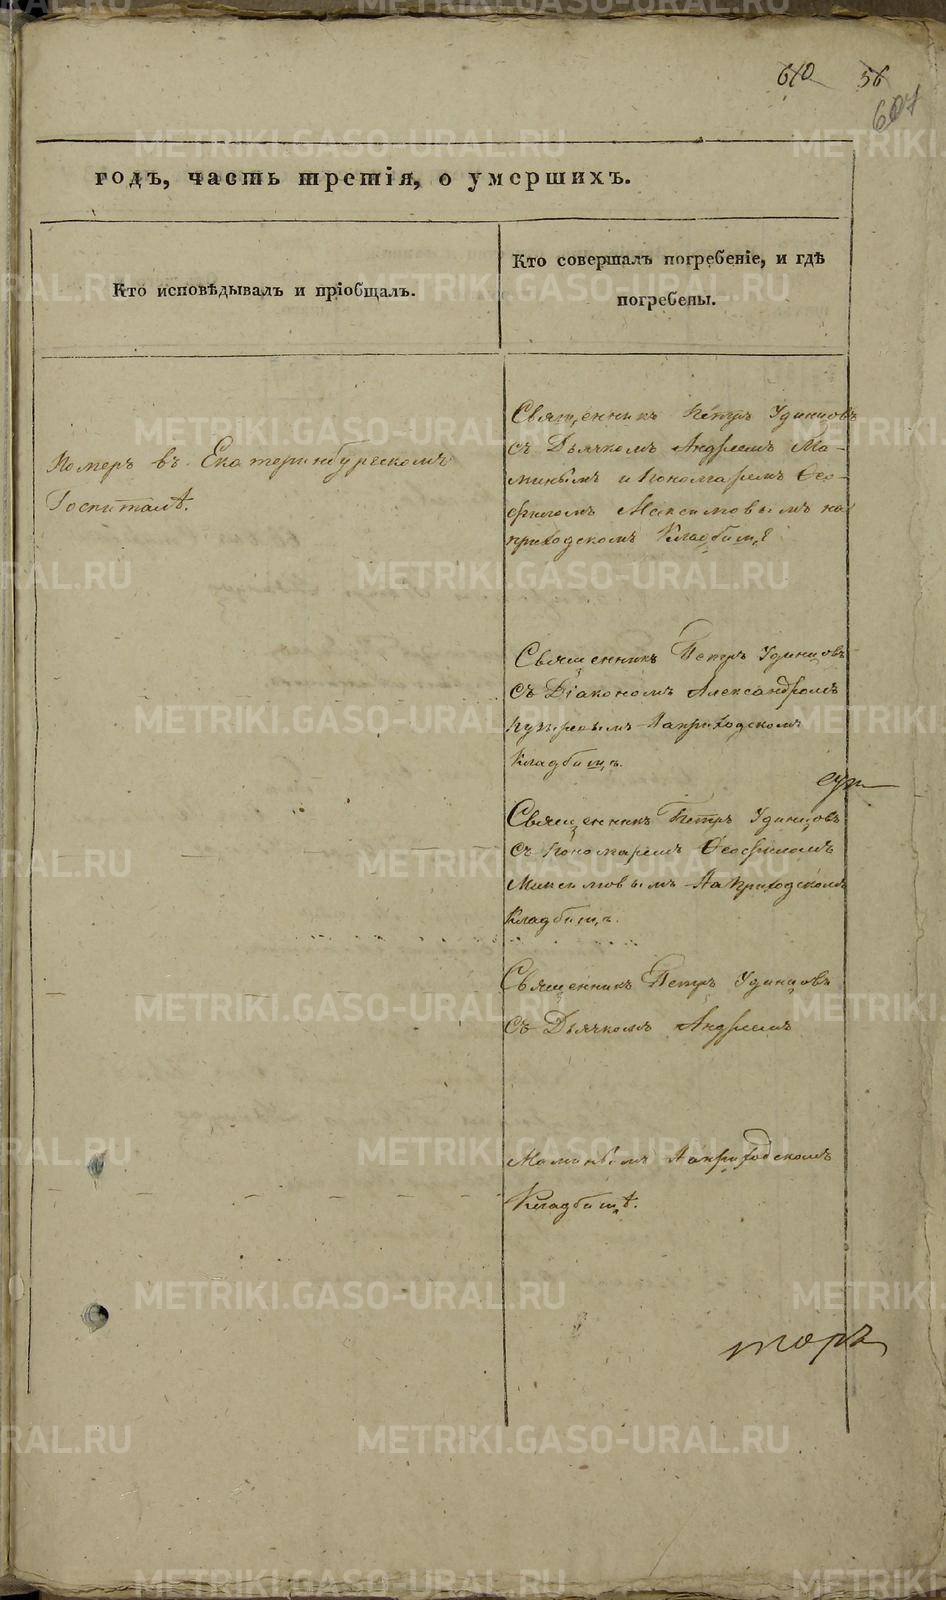 610 56
607
годъ, часть третія, о умершихъ.
Кто исповѣдывалъ и пріобщалъ.
Кто совершалъ погребеніе, и гдѣ
погребены.
Померъ въ Екатеринбургскомъ
Госпиталѣ.
Священникъ Петръ Удинцовъ
съ Дьячкомъ Андреемъ Ма-
минымъ и Пономаремъ Ѳео-
филомъ Максимовымъ на
приходскомъ Кладбищѣ
Священникъ Петръ Удинцовъ
съ Діакономъ Александромъ
На приходскомъ
Кладбищѣ.
Священникъ Петръ Удинцовъ
съ Пономаремъ Ѳеофиломъ
Максимовымъ На Приходскомъ
Кладбищѣ.
Священникъ Петръ Удинцовъ
съ Дьячкомъ Андреемъ
Маминымъ На приходскомъ
Кладбищѣ.
торъ
METRIKI.GASO-URAL.RU